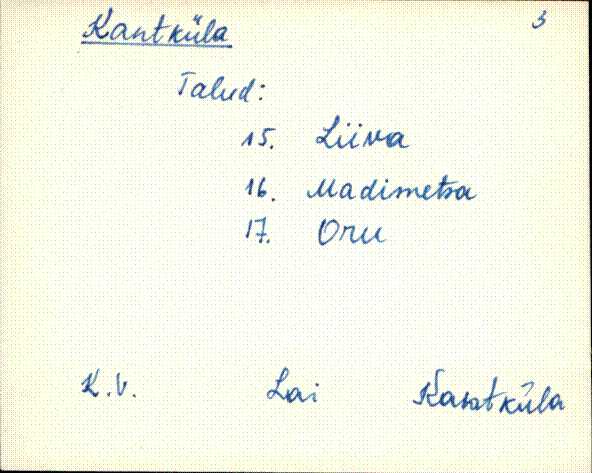 Kantküla 3
Talud:
15. Liiva
16. Madimetsa
17. Oru
K.V. Lai Kantküla